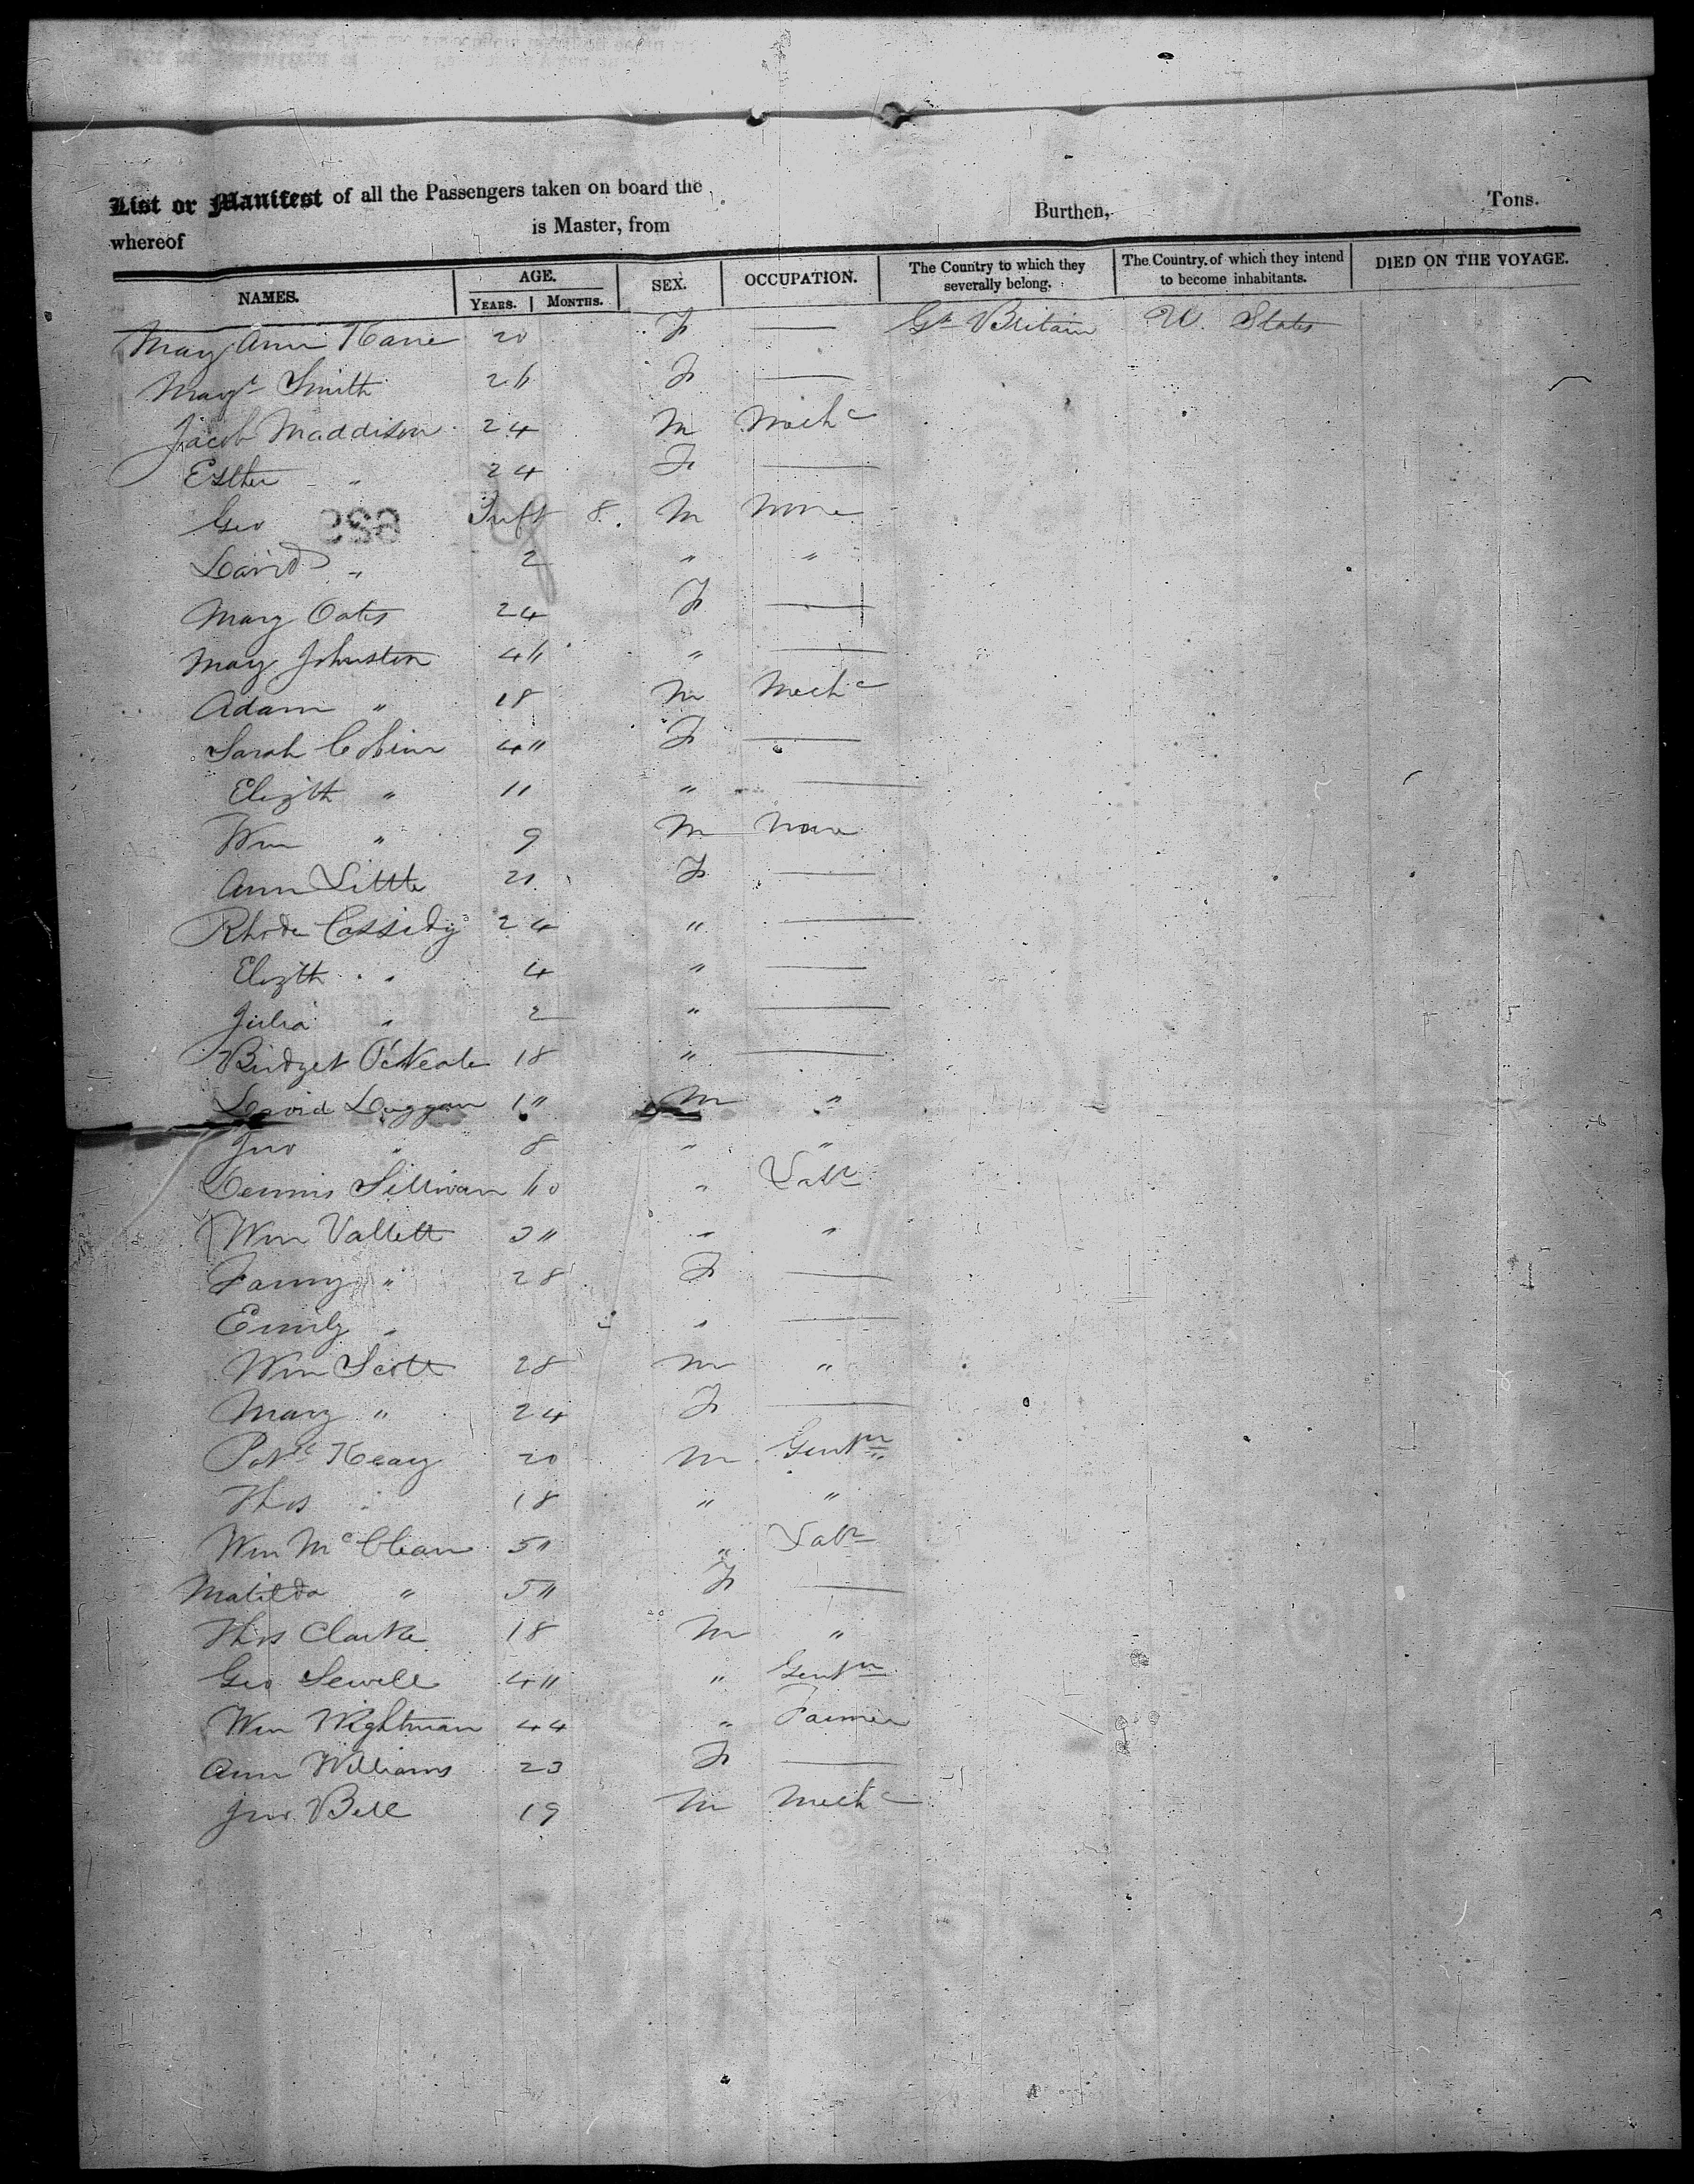 List or Manifest of all the Passengers taken on board the Burthen, Tons.
whereof is Master, from
NAMES. AGE. SEX. OCCUPATION. The Country to which they severally belong. The Country of which they intend to become inhabitants. DIED ON THE VOYAGE.
YEARS. MONTHS.
Mary Ann Kane 20 F — Gt Britain U. States
Margt Smith 26 F —
Jacob Maddison 24 M Mechc
Esther " 24 F —
Geo Inft 8. M None
David " 2 " "
Mary Oates 24 F —
Mary Johnston 46 " —
Adam " 18 M Mechc
Sarah 4" F —
Elizth " 11 " —
Wm " 9 M None
Ann Little 21 F —
Rhoda Cassidy 24 " —
Elizth " 4 " —
Julia " 2 " —
Bridget O'Neale 18 " —
David Duggan 1" M "
Jno " 8 " "
Dennis Sillivan 60 " Labr
Wm Vallett 3" " "
Fanny " 28 F —
Emily " " —
Wm Scott 28 M "
Mary " 24 F —
Patk Keay 20 M Gentn
Thos " 18 " "
Wm McClean 5" " Labr
Matilda " 5" F —
Thos Clarke 18 M "
Geo Sewell 4" " Gentn
Wm Wightman 44 " Farmer
Ann Williams 23 F —
Jno Bell 19 M Mechc